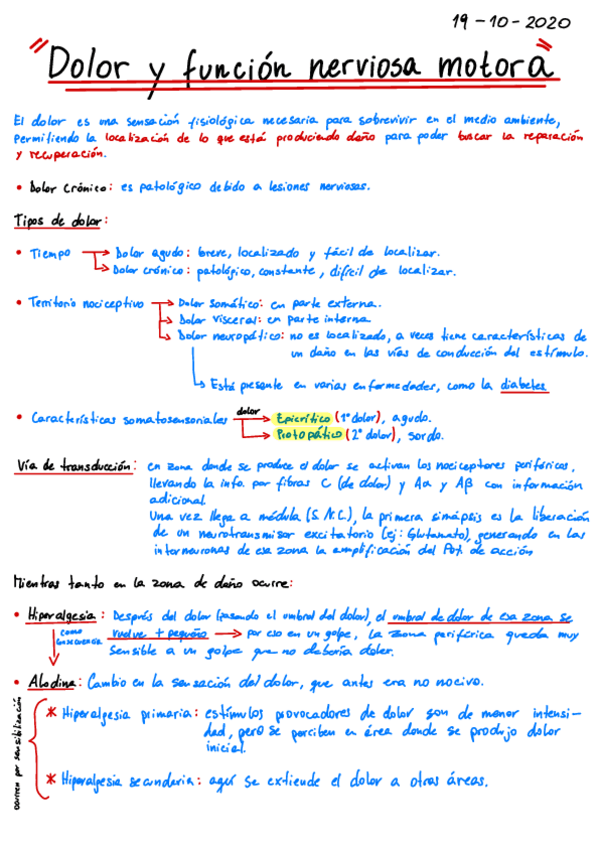 19-10-2020
"Dolor y función nerviosa motora"
El dolor es una sensación fisiológica necesaria para sobrevivir en el medio ambiente,
permitiendo la localización de lo que está produciendo daño para poder buscar la reparación
y recuperación.
• Dolor Crónico: es patológico debido a lesiones nerviosas.
Tipos de dolor:
• Tiempo → Dolor agudo: breve, localizado y fácil de localizar.
→ Dolor crónico: patológico, constante, difícil de localizar.
• Territorio nociceptivo → Dolor somático: en parte externa.
→ Dolor visceral: en parte interna
→ Dolor neuropático: no es localizado, a veces tiene características de
un daño en las vías de conducción del estímulo.
→ Está presente en varias enfermedades, como la diabetes
• Características somatosensoriales dolor → Epicrítico (1º dolor), agudo.
→ Protopático (2º dolor), sordo.
Vía de transducción: en zona donde se produce el dolor se activan los nociceptores periféricos,
llevando la info. por fibras C (de dolor) y Aα y Aβ con información
adicional
Una vez llega a médula (S.N.C.), la primera sinápsis es la liberación
de un neurotransmisor excitatorio (ej: Glutamato), generando en las
interneuronas de esa zona la amplificación del Pot. de acción
Mientras tanto en la zona de daño ocurre:
• Hiperalgesia: Después del dolor (pasando el umbral del dolor), el umbral de dolor de esa zona se
como consecuencia
vuelve + pequeño → por eso en un golpe, la zona periférica queda muy
sensible a un golpe que no debería doler.
• Alodina: Cambio en la sensación del dolor, que antes era no nocivo.
ocurren por sensibilización
* Hiperalgesia primaria: estímulos provocadores de dolor son de menor intensi-
dad, pero se perciben en área donde se produjo dolor
inicial.
* Hiperalgesia secundaria: aquí se extiende el dolor a otras áreas.